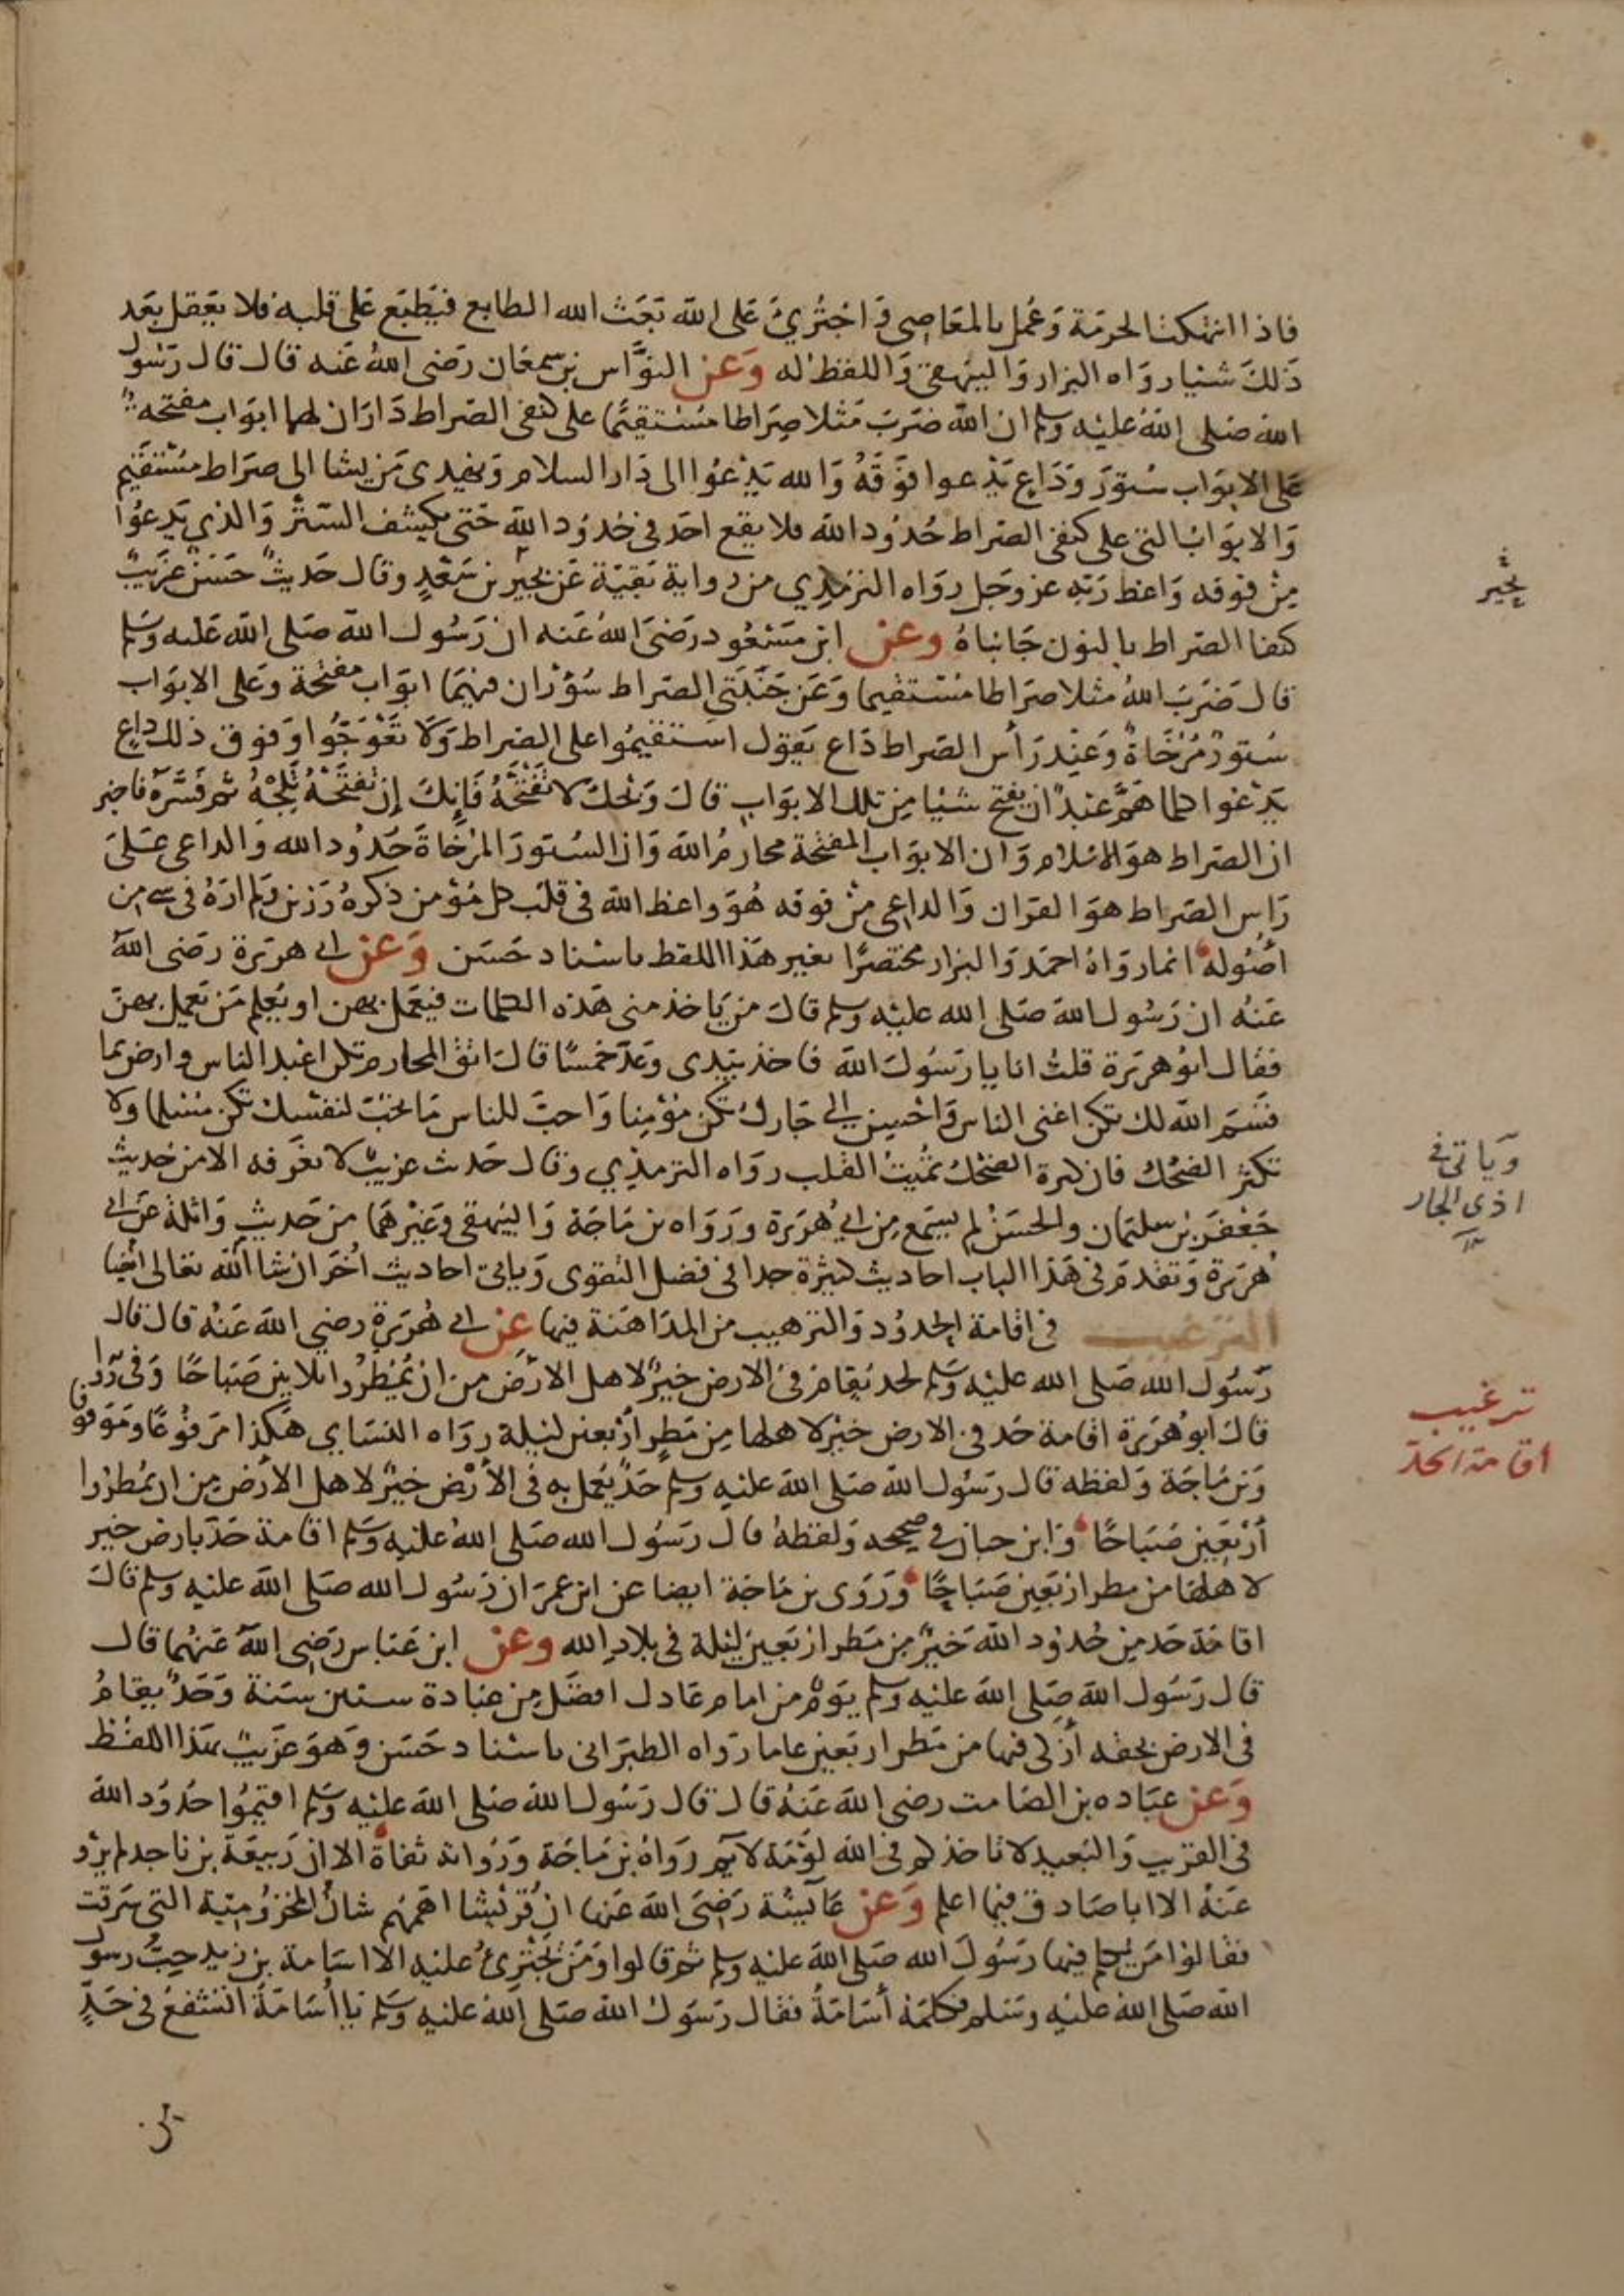 فاذا انتهكت الحرمة وعمل بالمعاصي واجترئ على الله بعث الله الطابع فيطبع على قلبه فلا يعقل بعد
ذلك شيا رواه البزار والبيهقي واللفظ له وعن النواس بن سمعان رضي الله عنه قال قال رسول
الله صلى الله عليه وسلم ان الله ضرب مثلا صراطا مستقيما على كنفي الصراط داران لهما ابواب مفتحة
على الابواب ستور وداع يدعوا فوقه والله يدعوا الى دار السلام ويهدى من يشا الى صراط مستقيم
والابواب التى على كنفي الصراط حدود الله فلا يقع احد فى حدود الله حتى يكشف الستر والذي يدعوا
من فوقه واعظ ربه عز وجل رواه الترمذي من رواية بقية عن بحير بن سعد وقال حديث حسن غريب
كنفا الصراط بالنون جانباه وعن ابن مسعود رضي الله عنه ان رسول الله صلى الله عليه وسلم
قال ضرب الله مثلا صراطا مستقيما وعن جنبتي الصراط سوران فيهما ابواب مفتحة وعلى الابواب
ستور مرخاة وعند رأس الصراط داع يقول استقيموا على الصراط ولا تعوجوا وفوق ذلك داع
يدعوا كلما هم عبد ان يفتح شيا من تلك الابواب قال ويحك لا تفتحه فإنك إن تفتحه تلجه ثم فسره فاخبر
ان الصراط هو الاسلام وان الابواب المفتحة محارم الله وان الستور المرخاة حدود الله والداعي على
راس الصراط هو القران والداعي من فوقه هو واعظ الله فى قلب كل مؤمن ذكره رزين ولم اره فى شي من
اصوله انما رواه احمد والبزار مختصرا بغير هذا اللفظ باسناد حسن وعن ابي هريرة رضى الله
عنه ان رسول الله صلى الله عليه وسلم قال من ياخذ منى هذه الكلمات فيعمل بهن او يعلم من يعمل بهن
فقال ابو هريرة قلت انا يا رسول الله فاخذ بيدى وعد خمسا قال اتق المحارم تكن اعبد الناس وارض بما
قسم الله لك تكن اغنى الناس واحسن الى جارك تكن مؤمنا واحب للناس ما تحب لنفسك تكن مسلما ولا
تكثر الضحك فان كثرة الضحك تميت القلب رواه الترمذي وقال حديث غريب لا نعرفه الا من حديث
جعفر بن سليمان والحسن لم يسمع من ابي هريرة ورواه بن ماجة والبيهقى وغيرهما من حديث واثلة عن ابي
هريرة وتقدم فى هذا الباب احاديث كثيرة جدا فى فضل التقوى وياتى احاديث اخر ان شا الله تعالى ايضا
الترغيب فى اقامة الحدود والترهيب من المداهنة فيها عن ابي هريرة رضي الله عنه قال قال
رسول الله صلى الله عليه وسلم لحد يقام فى الارض خير لاهل الارض من ان يمطروا ثلاثين صباحا وفى رواية
قال ابو هريرة اقامة حد فى الارض خير لاهلها من مطر أربعين ليلة رواه النساي هكذا مرفوعا وموقوفا
وبن ماجة ولفظه قال رسول الله صلى الله عليه وسلم حد يعمل به فى الأرض خير لاهل الأرض من ان يمطروا
أربعين صباحا وابن حبان فى صحيحه ولفظه قال رسول الله صلى الله عليه وسلم اقامة حد بارض خير
لاهلها من مطر اربعين صباحا وروى بن ماجة ايضا عن ابن عمر ان رسول الله صلى الله عليه وسلم قال
اقامة حد من حدود الله خير من مطر اربعين ليلة فى بلاد الله وعن ابن عباس رضى الله عنهما قال
قال رسول الله صلى الله عليه وسلم يوم من امام عادل افضل من عبادة ستين سنة وحد يقام
فى الارض بحقه أزكى فيها من مطر اربعين عاما رواه الطبرانى باسناد حسن وهو غريب بهذا اللفظ
وعن عباده بن الصامت رضى الله عنه قال قال رسول الله صلى الله عليه وسلم اقيموا حدود الله
فى القريب والبعيد لا تاخذكم فى الله لومة لايم رواه بن ماجة ورواته ثقاة الا ان ربيعة بن ناجد لم يرو
عنه الا ابا صادق فيما اعلم وعن عايشة رضى الله عنها ان قريشا اهمهم شان المخزومية التى سرقت
فقالوا من يكلم فيها رسول الله صلى الله عليه وسلم ثم قالوا ومن يجترئ عليه الا اسامة بن زيد حب رسول
الله صلى الله عليه وسلم فكلمه أسامة فقال رسول الله صلى الله عليه وسلم يا اسامة اتشفع فى حد
بحير
وياتى فى
اذى الجار
ترغيب
اقامة الحد